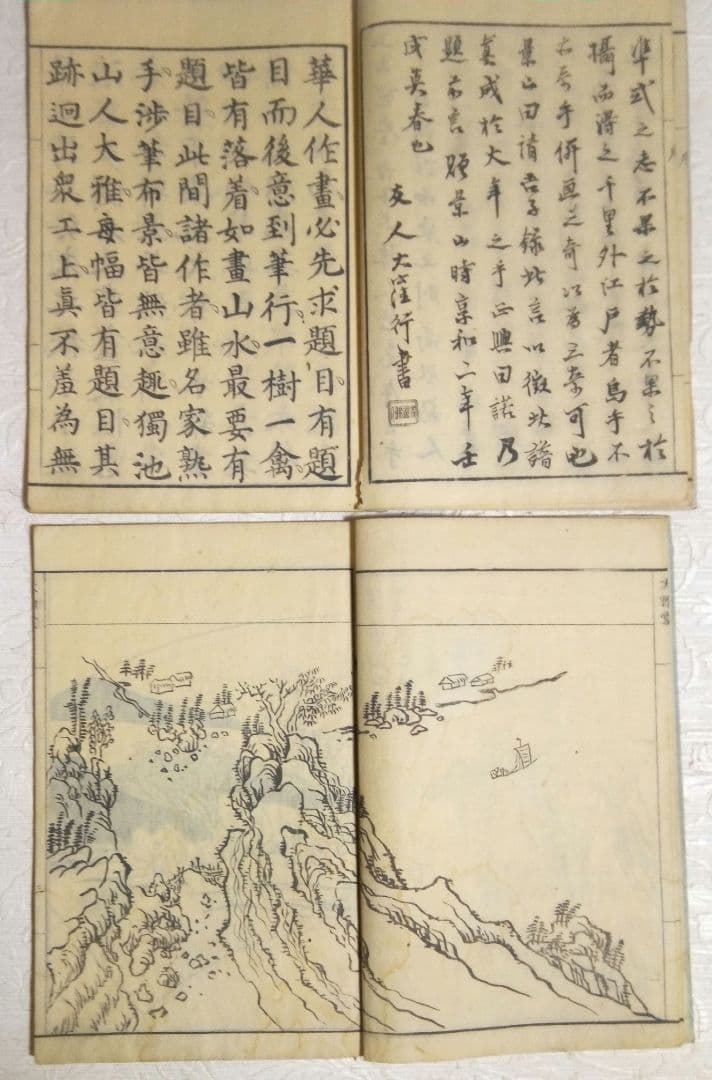 準式之志不果之於勢不果之於
攝而得之千里外江戸者烏乎不
亦奇乎併画之奇以為三奇可也
景山曰請吾子録此言以徴此譜
真成於大年之手正興曰諾乃
題前言贈景山時享和二年壬
戌莫春也
友人大窪行書
華人作畫必先求題目有題
目而後意到筆行一樹一禽
皆有落着如畫山水最要有
題目此間諸作者雖名家熟
手涉筆布景皆無意趣獨池
山人大雅每幅皆有題目其
跡迥出衆工上眞不羞為無